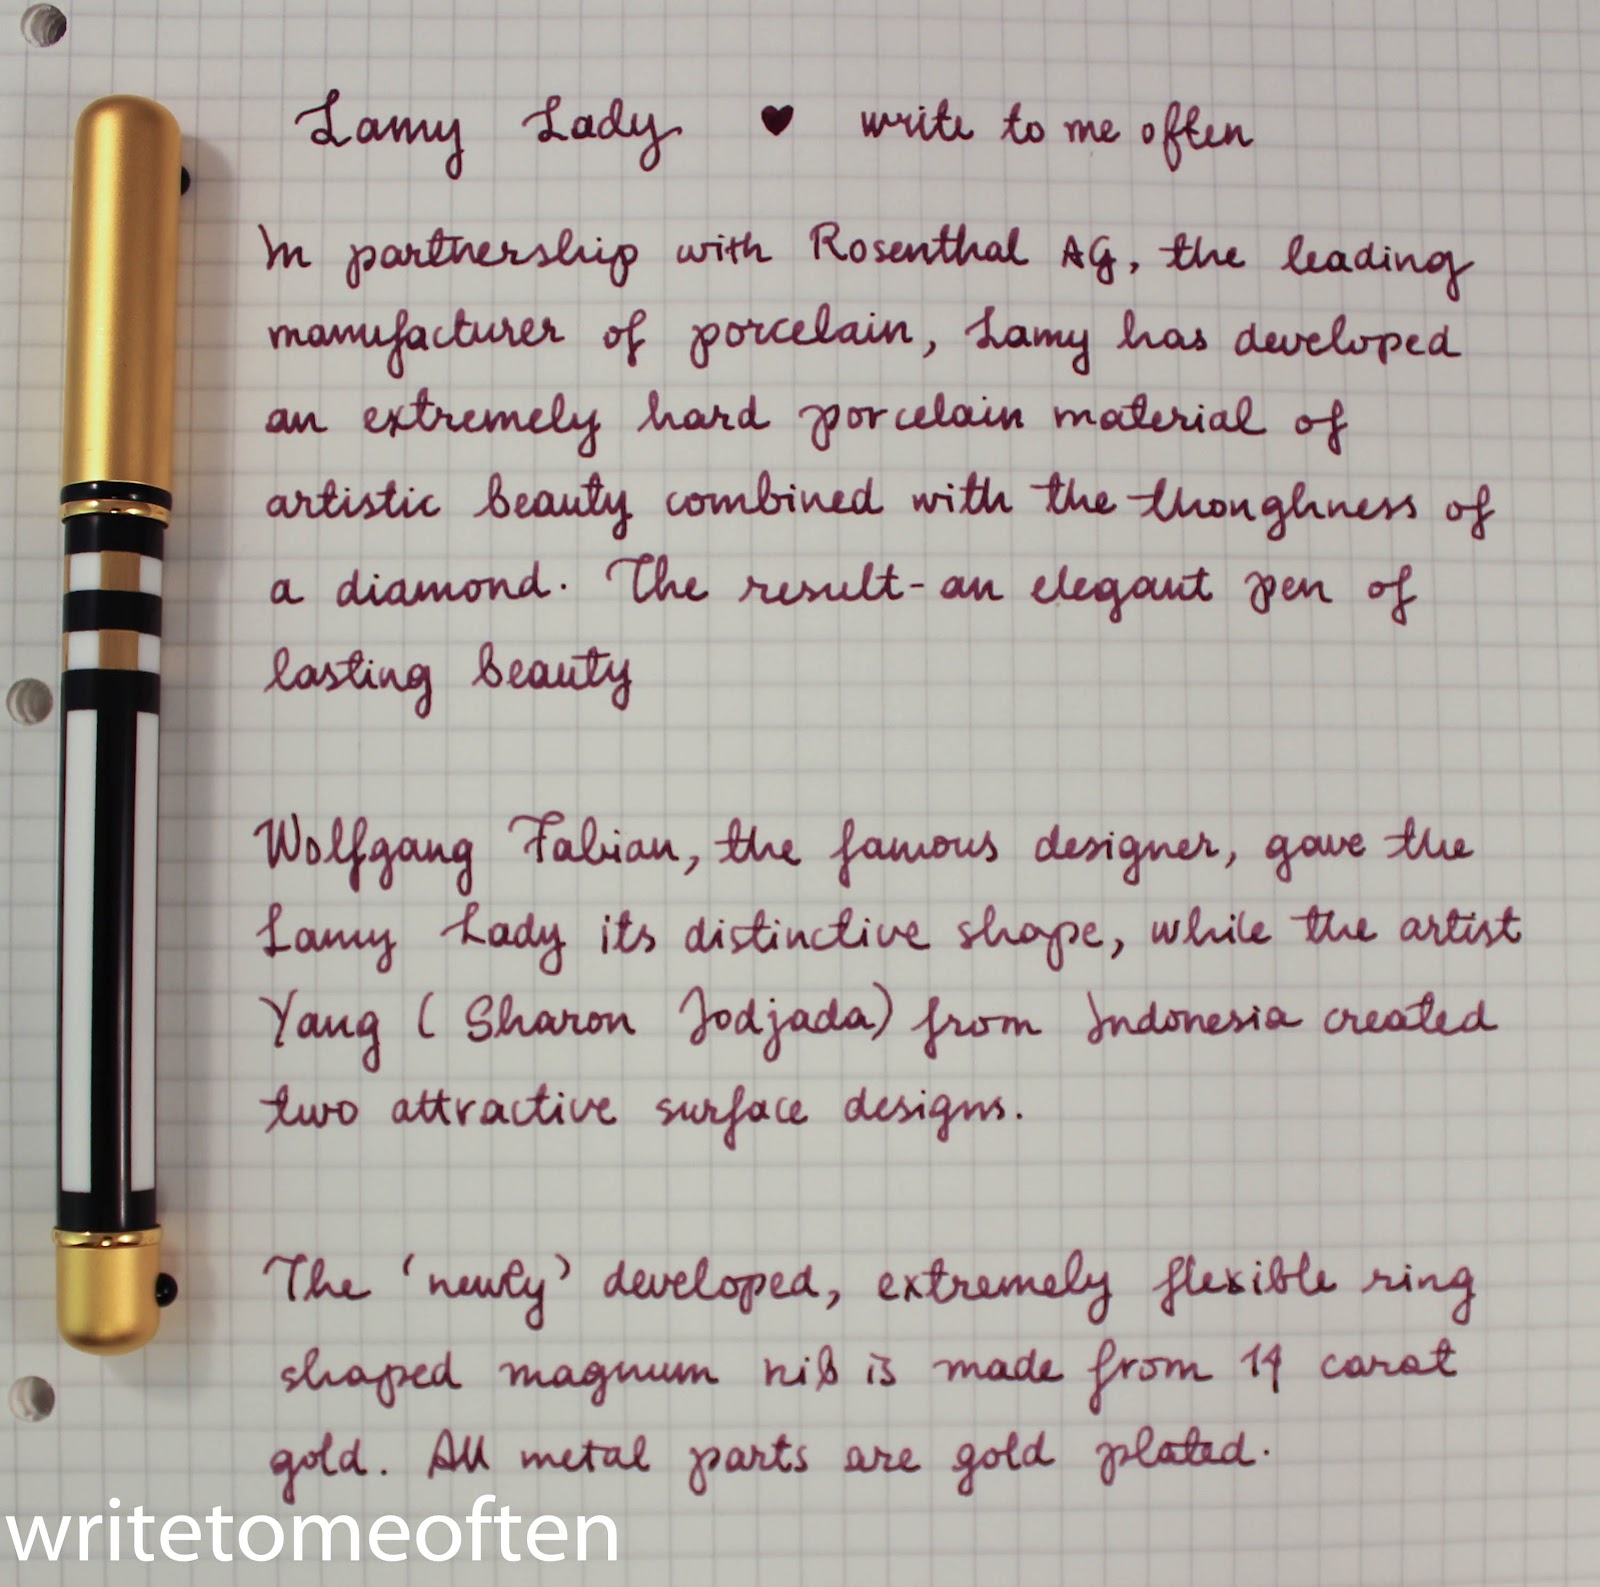 Lamy Lady ♥ write to me often
In partnership with Rosenthal AG, the leading
manufacturer of porcelain, Lamy has developed
an extremely hard porcelain material of
artistic beauty combined with the thoughness of
a diamond. The result - an elegant pen of
lasting beauty
Wolfgang Fabian, the famous designer, gave the
Lamy Lady its distinctive shape, while the artist
Yang ( Sharon Jodjada) from Indonesia created
two attractive surface designs.
The 'newly' developed, extremely flexible ring
shaped magnum nib is made from 14 carat
gold. All metal parts are gold plated.
writetomeoften